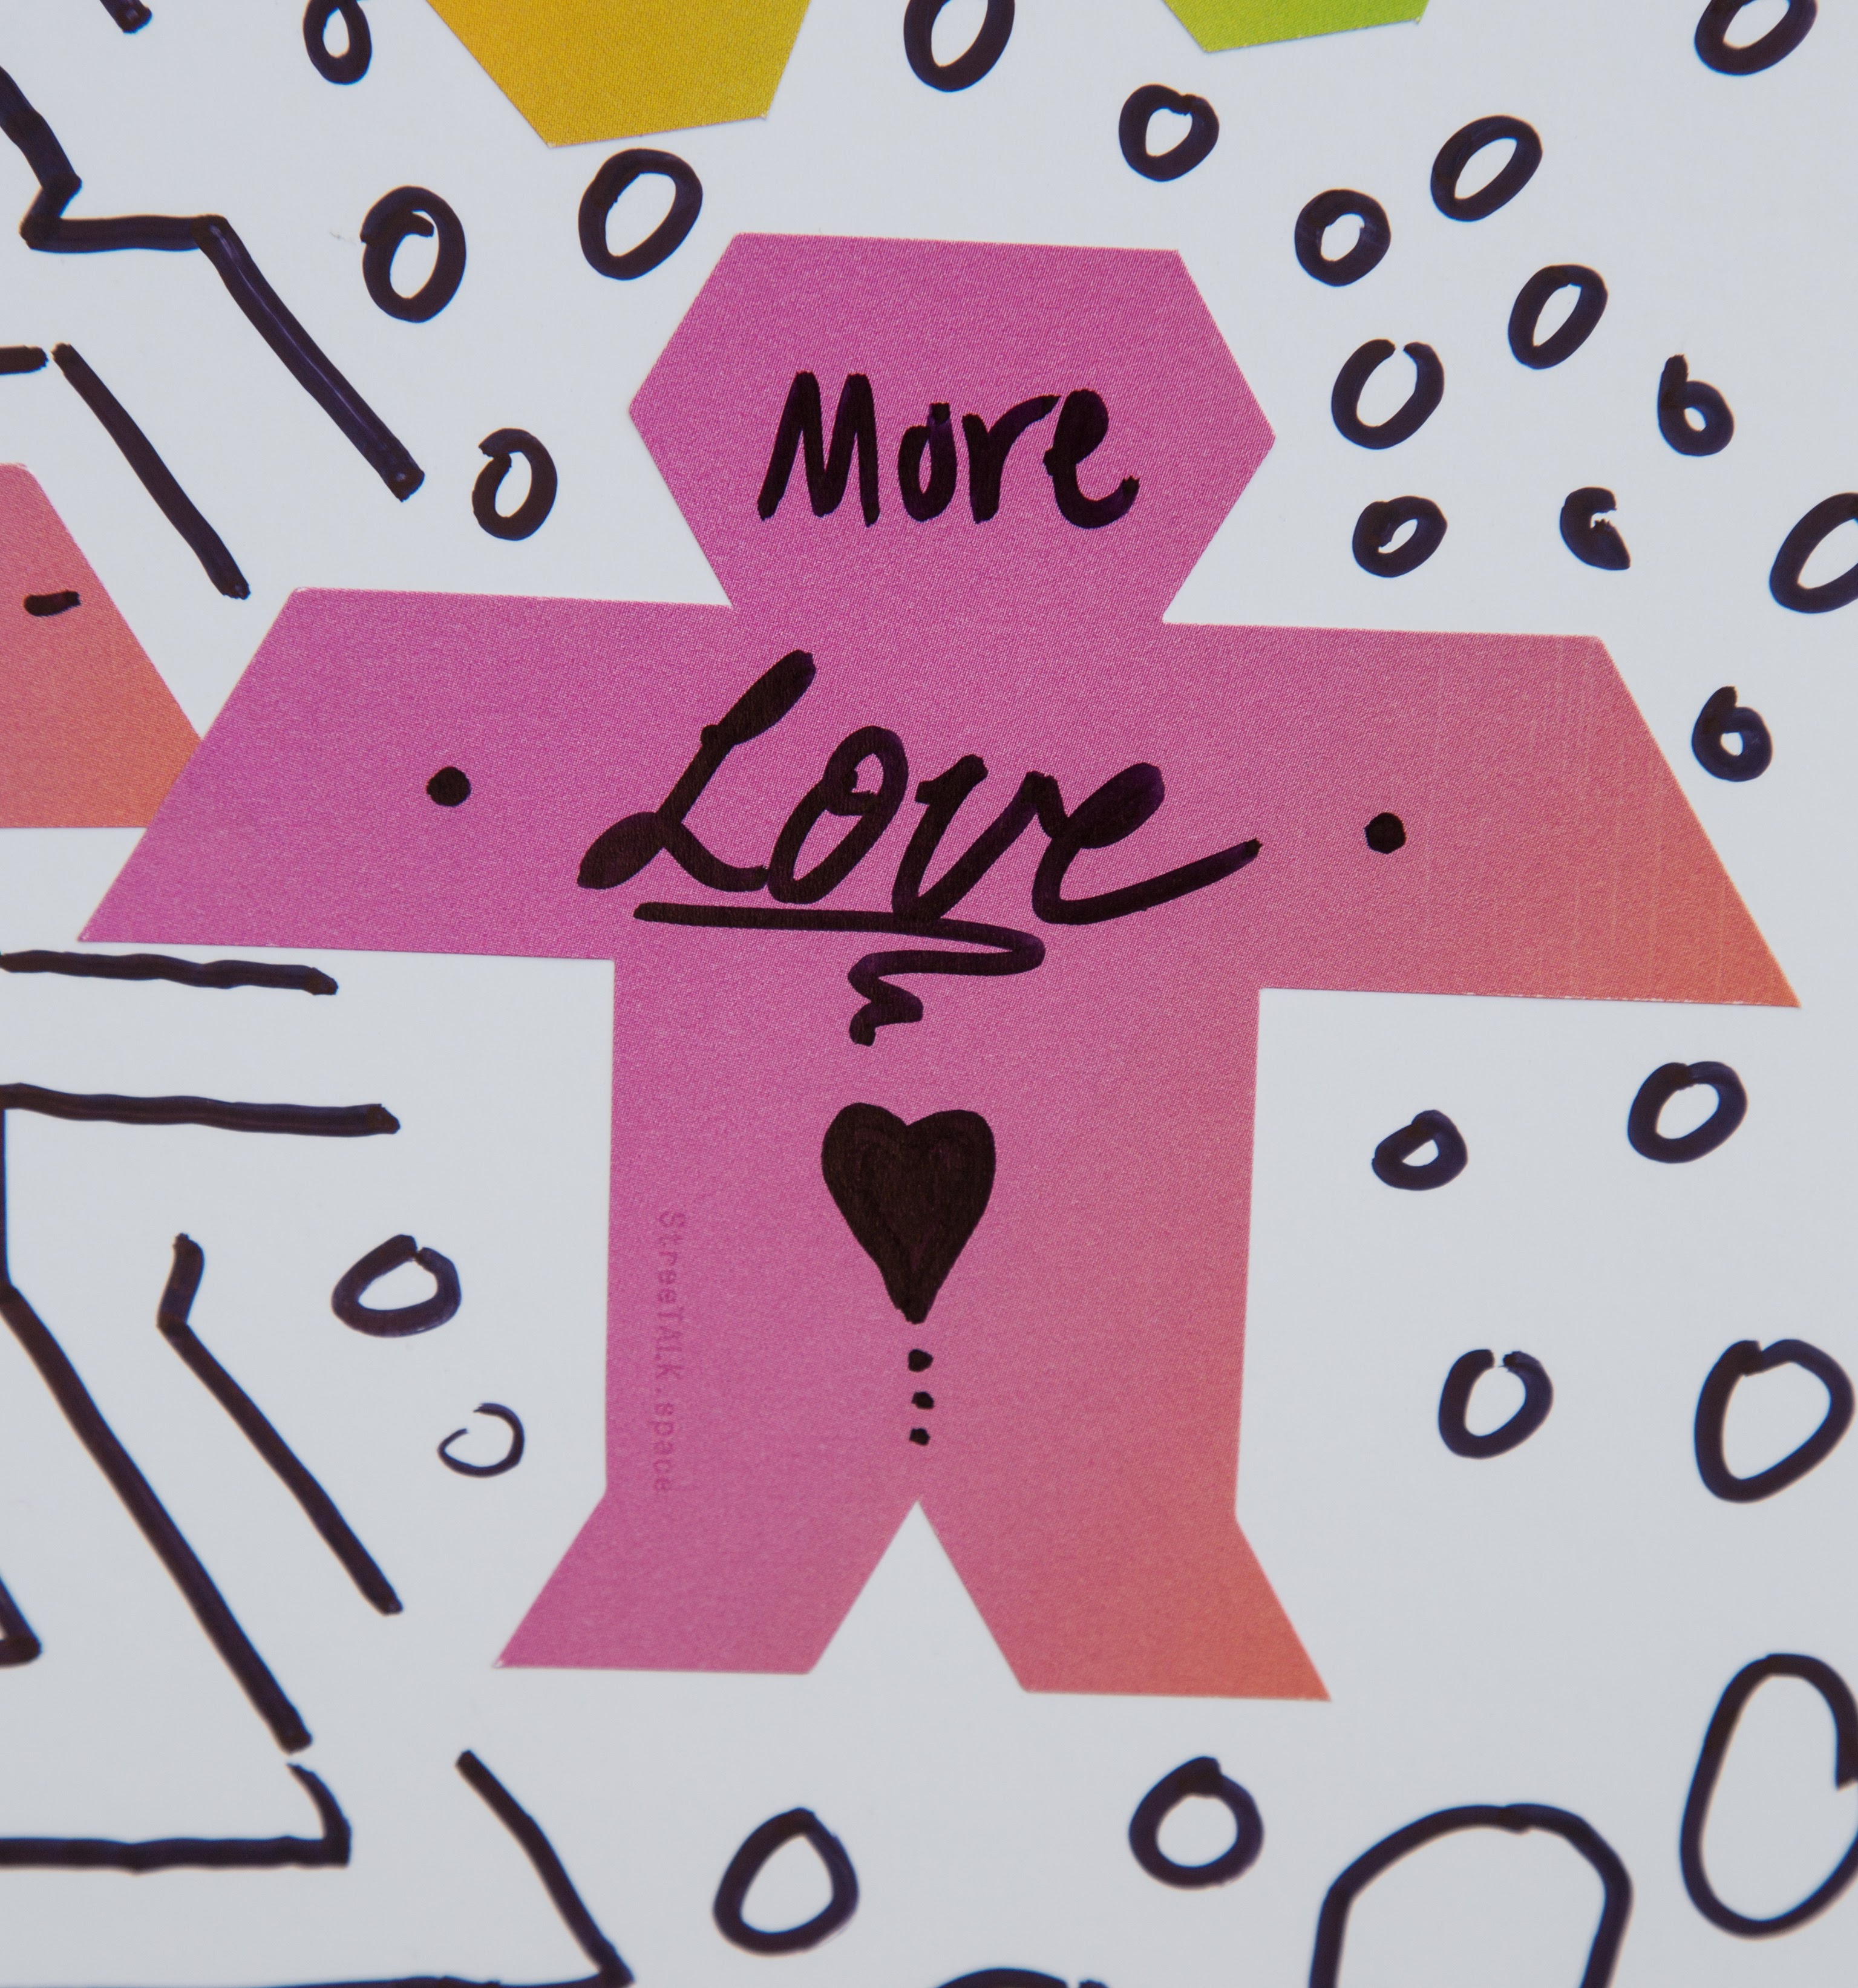 More
Love
StreeTALK.space